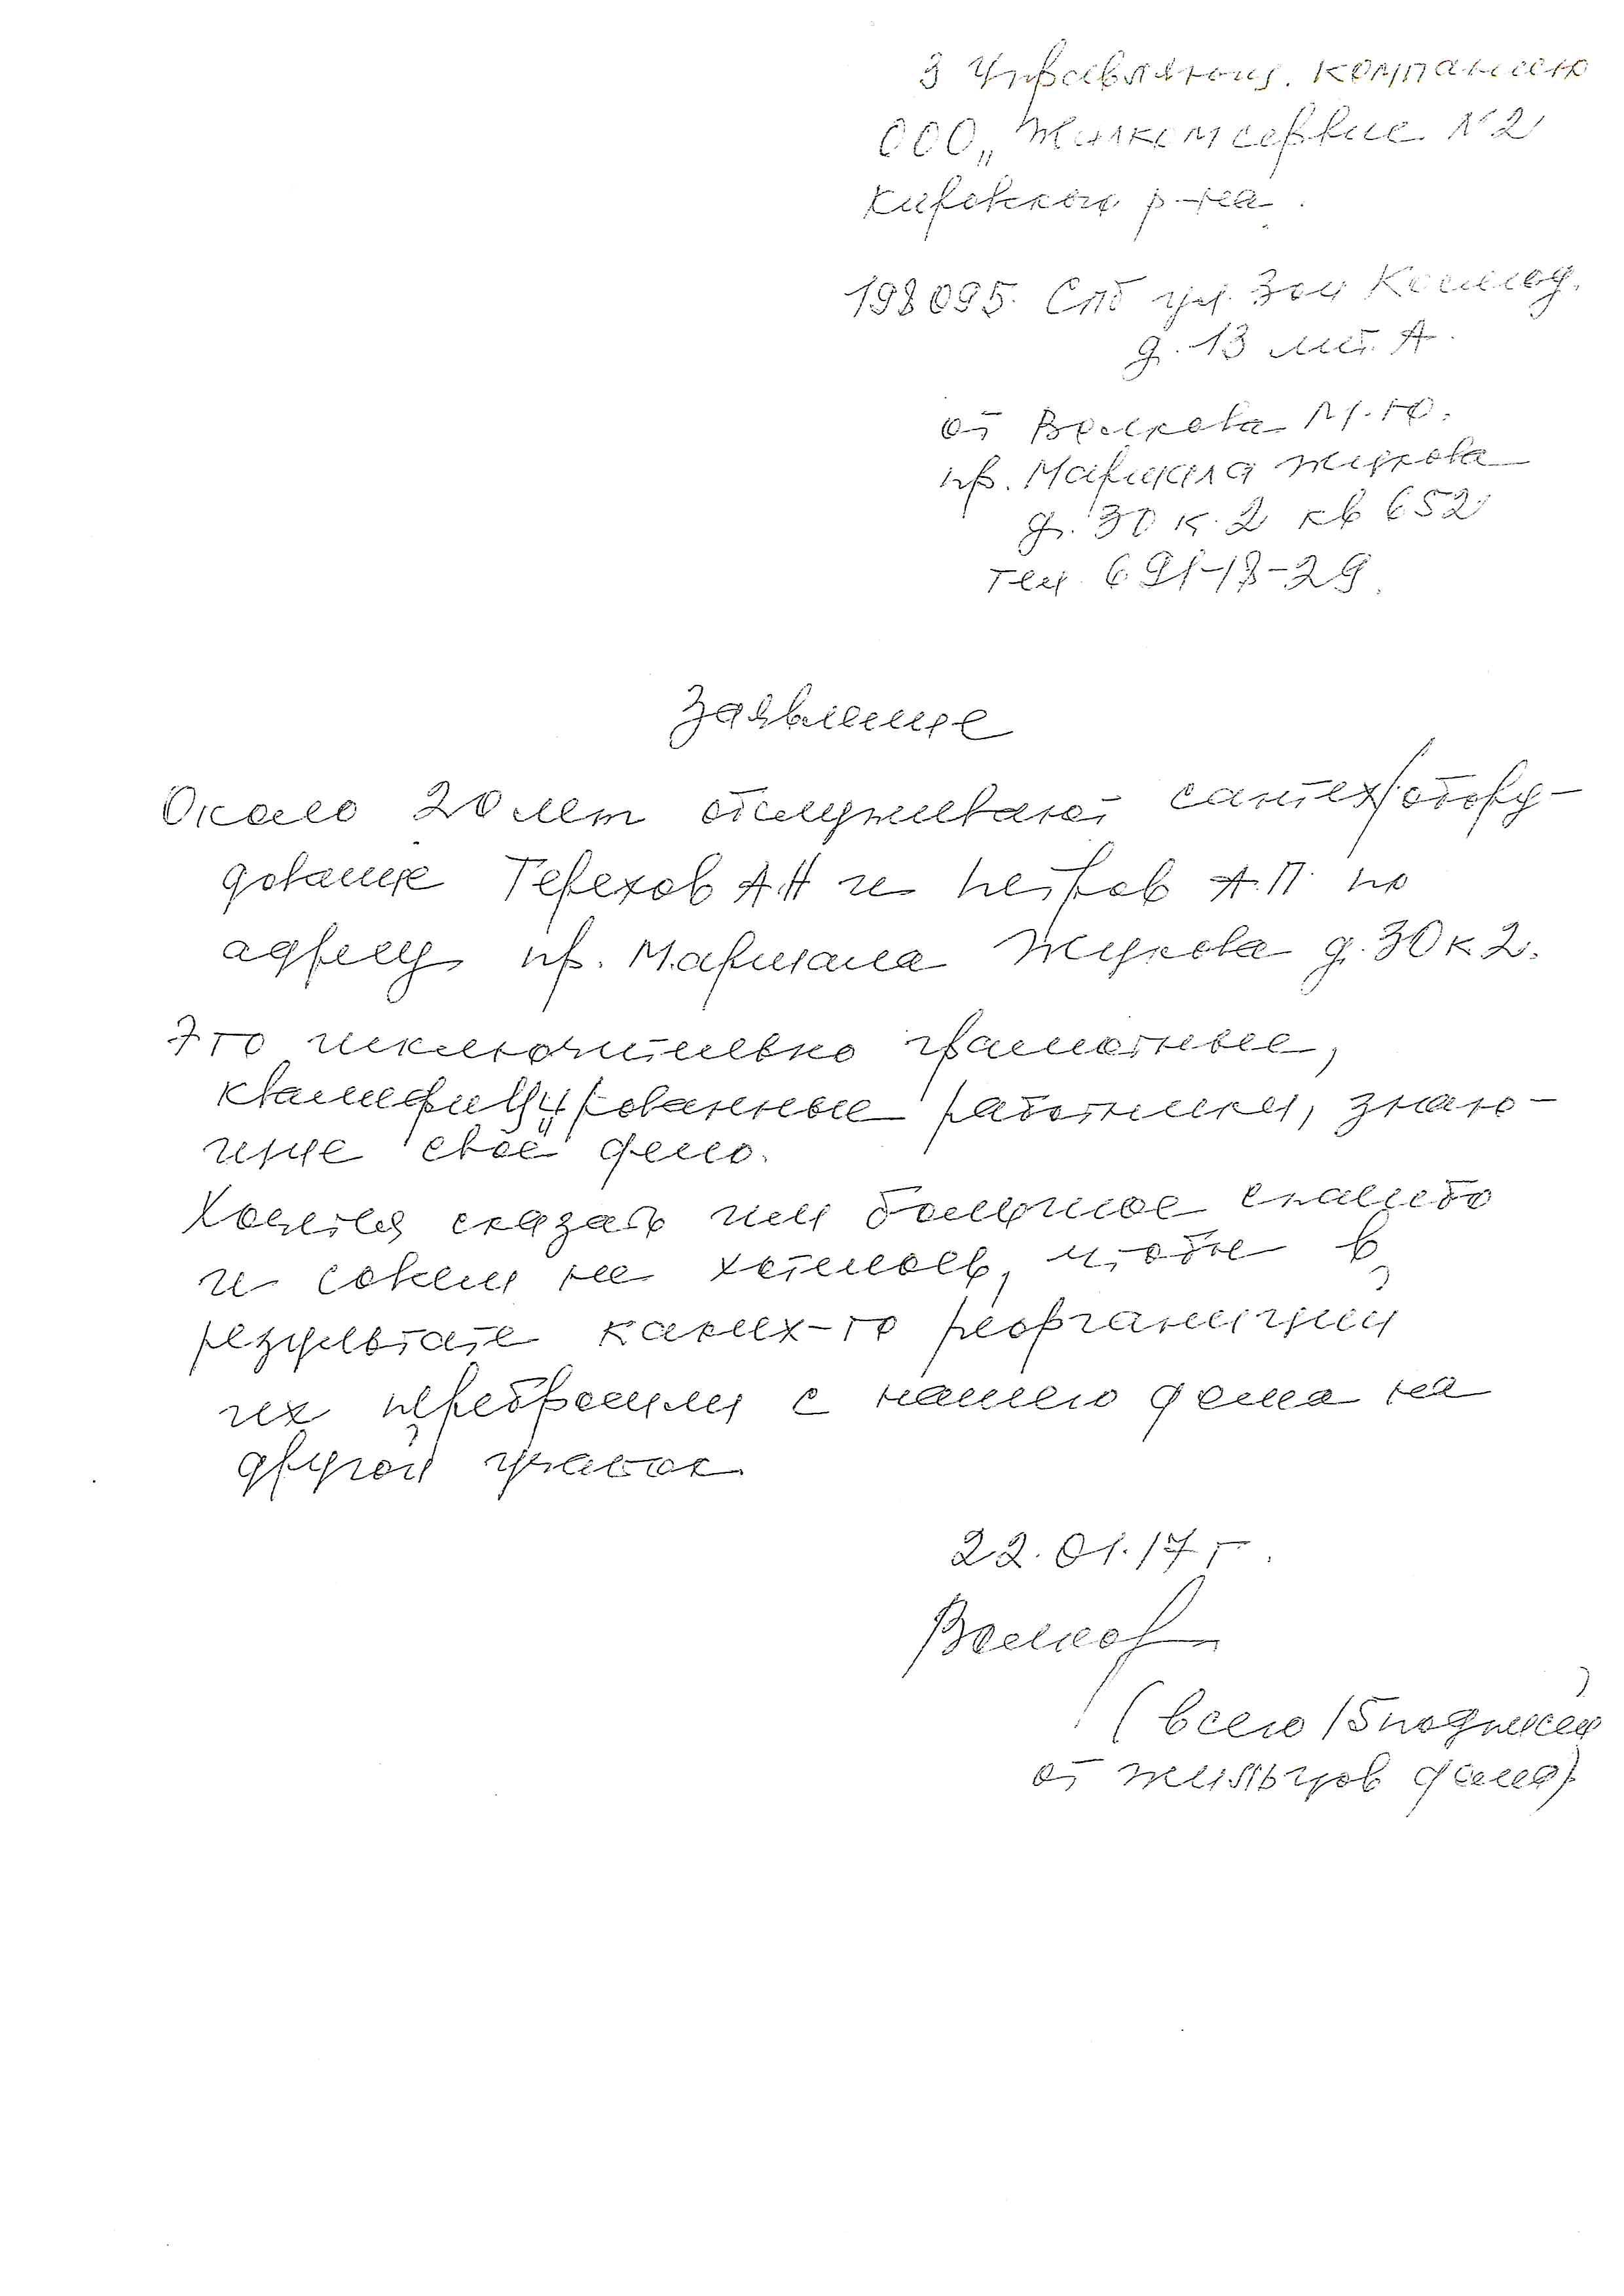 З Управляющ. компанию
ООО „Жилкомсервис N2
Кировского р-на.
198095. Спб ул. Зои Космод.
д. 13 лит. А.
от Волкова М.Ю.
пр. Маршала Жукова
д. 30 к. 2 кв 652
тел. 691-18-29.
Заявление
Около 20 лет обслуживают сантех/обору-
дование Терехов А.Н и Петров А.П. по
адресу пр. Маршала Жукова д. 30 к 2.
Это исключительно грамотные,
квалифицированные работники, знаю-
щие своё дело.
Хочется сказать им большое спасибо
и совсем не хотелось, чтобы в
результате каких-то реорганизаций
их перебросили с нашего дома на
другой участок.
22.01.17 г.
Волков
(всего 15 подписей
от жильцов дома).